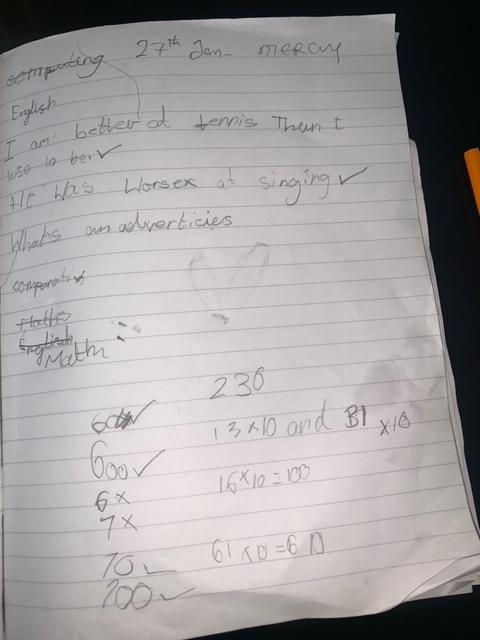 computing 27th Jan- mercy
English
I am better at tennis Than I
use to be ✓
He was Worse x at singing ✓
Whats an adverticies
comparative
Maths
English
Math
600 ✓
6 x
7 x
70 ✓
700 ✓
230
13 x10 and B1 x10
16 x 10 = 100
61 x 10 = 610